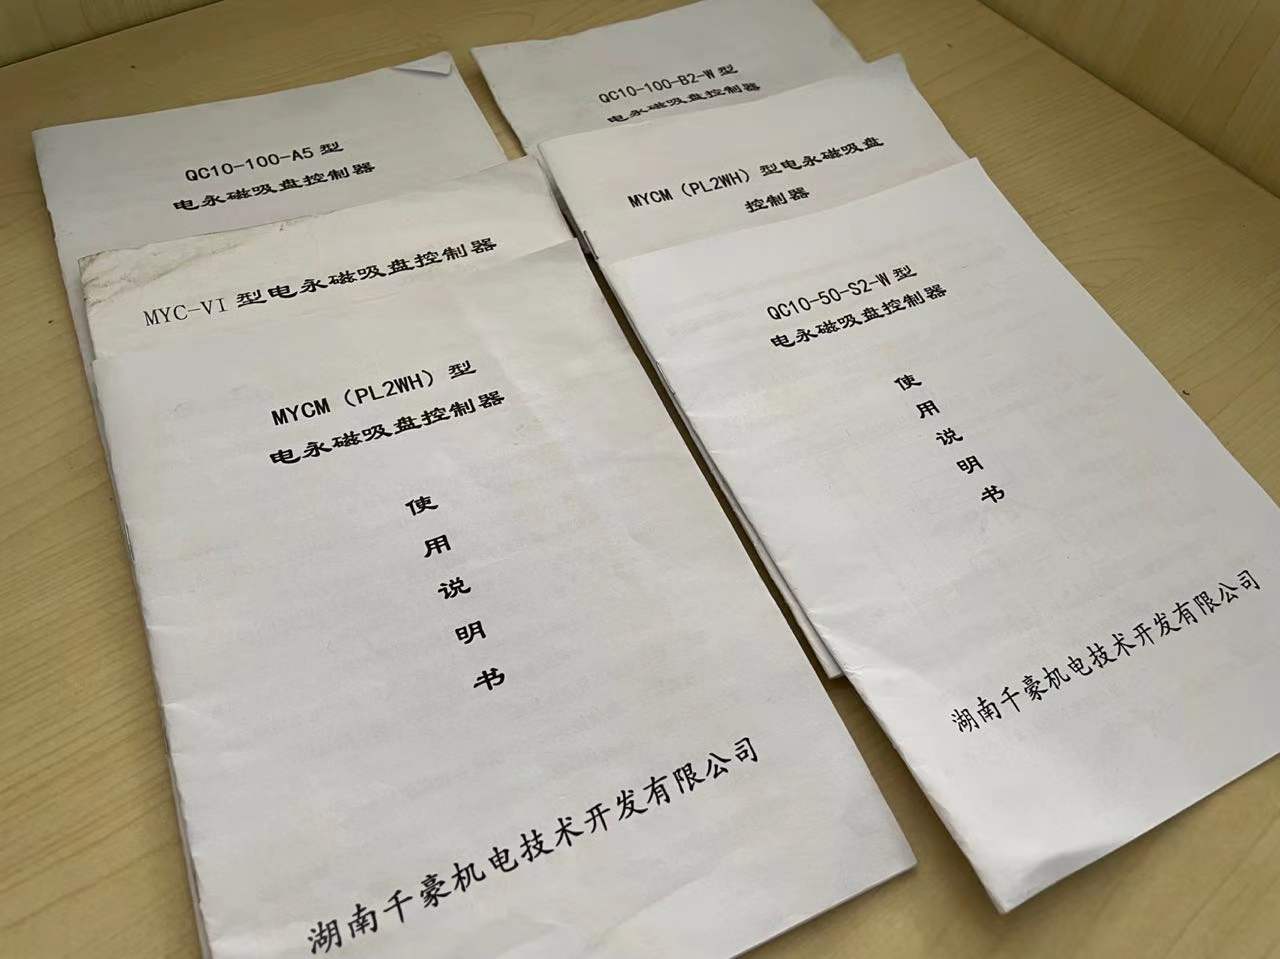 QC10-100-A5 型
电永磁吸盘控制器
MYC-VI 型电永磁吸盘控制器
MYCM（PL2WH）型
电永磁吸盘控制器
使
用
说
明
书
湖南千豪机电技术开发有限公司
QC10-100-B2-W 型
电永磁吸盘控制器
MYCM（PL2WH）型电永磁吸盘
控制器
QC10-50-S2-W 型
电永磁吸盘控制器
使
用
说
明
书
湖南千豪机电技术开发有限公司